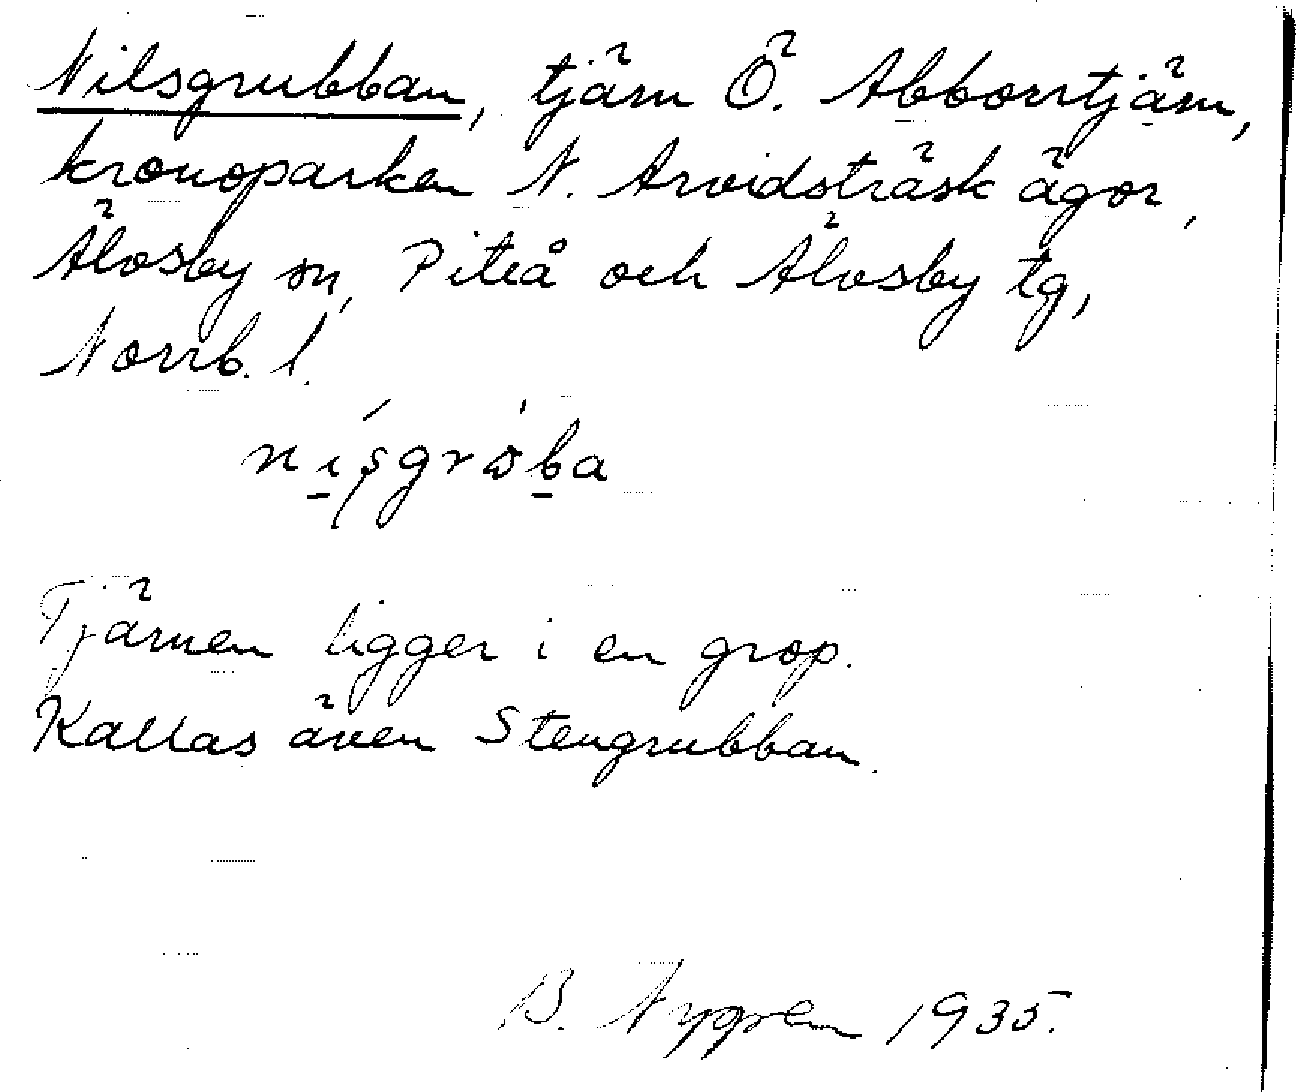 Nilsgrubban, tjärn Ö. Abborrtjärn,
kronoparken N. Arvidsträsk ägor,
Älvsby sn, Piteå och Älvsby tg,
Norrb. l.
Tjärnen ligger i en grop.
Kallas även Stengrubban.
B. Nygren 1935.